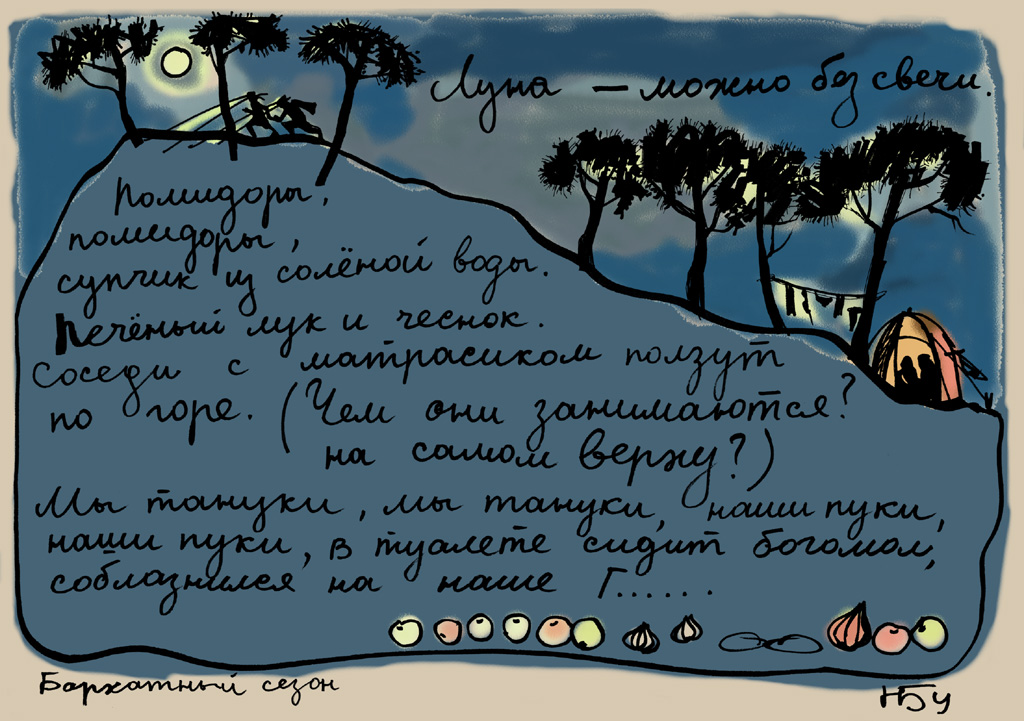 Луна — можно без свечи.
Помидоры,
помидоры,
супчик из солёной воды.
Печёный лук и чеснок.
Соседи с матрасиком ползут
по горе. (Чем они занимаются?
на самом верху?)
Мы тануки, мы тануки, наши пуки,
наши пуки, в туалете сидит богомол,
соблазнился на наше Г......
Бархатный сезон
НБУ